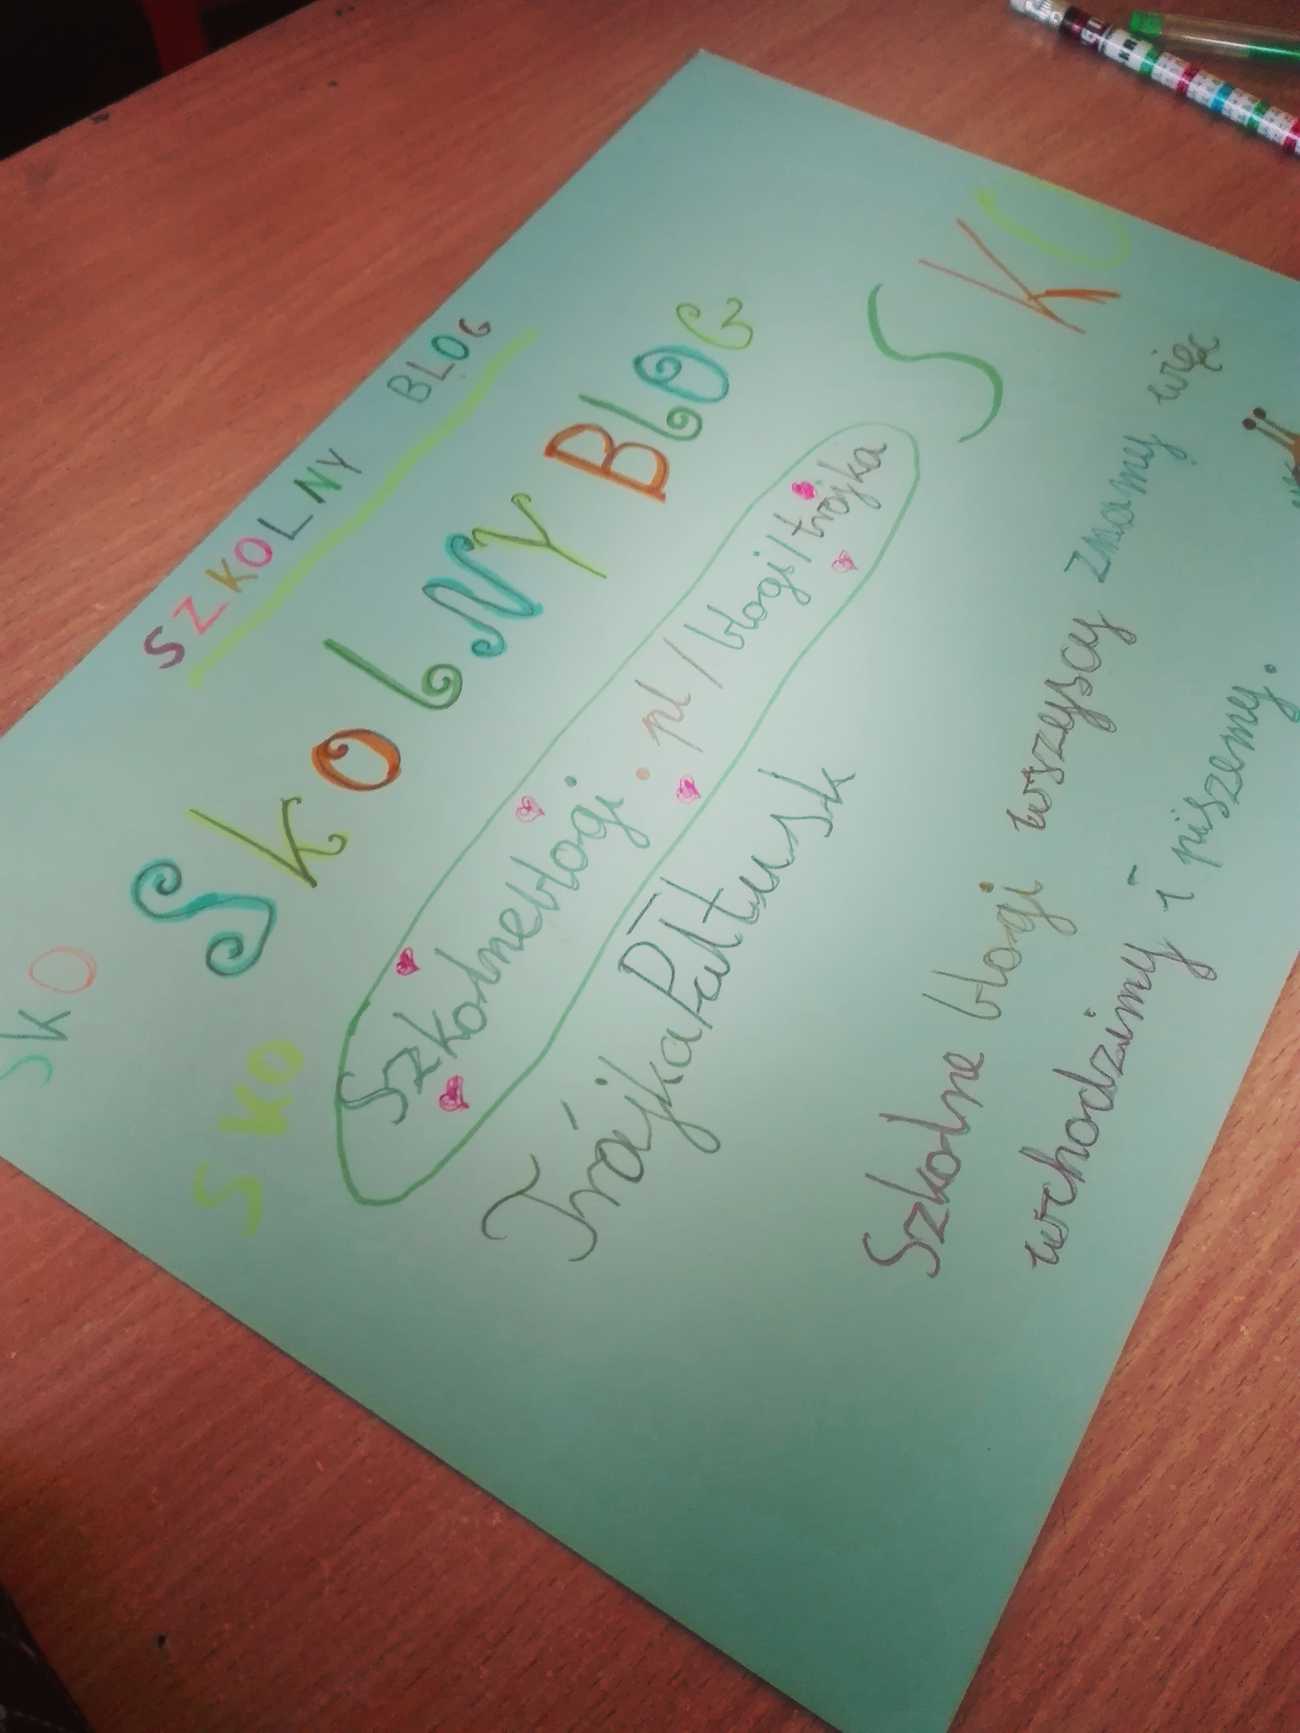 SZKOLNY BLOG
SKO
SkOLNY BLOG
SKO
Szkolneblogi.pl/blogi/trójka
TrójkaPułtusk
SKO
Szkolne blogi wszyscy znamy więc
wchodzimy i piszemy.